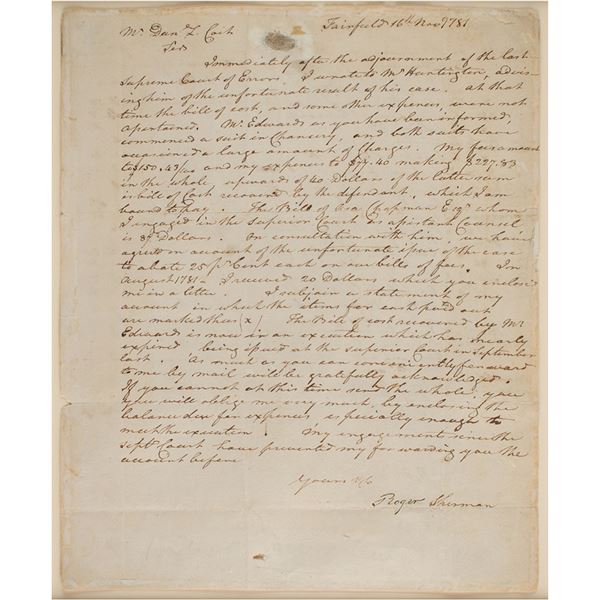 Mr Dan Z Coit Fairfield 16th Nov 1781
Sir
Immediately after the adjournment of the last
Supreme Court of Errors I wrote to Mr Huntington, advis-
ing him of the unfortunate result of his case. At that
time the bill of cost, and some other expences, were not
ascertained. Mr Edwards as you have been informed,
commenced a suit in Chancery, and both suits have
occasioned a large amount of Charges. My fees amount
to $150.43/100 and my expences to $77.40 making $227.83
in the whole upwards of 40 Dollars of the latter sum
is bill of Cost recovered by the defendant, which I am
bound to pay. The Bill of Asa Chapman Esqr whom
I engaged in the Superior Court as assistant Counsel
is 87 Dollars. In consultation with him, we have
agreed on account of the unfortunate issue of the case
to abate 25 pr Cent each on our bills of fees. In
August 1781 I received 20 Dollars which you enclosed
me in a letter. I subjoin a statement of my
account in which the items for cash paid out
are marked thus (x) The Bill of cost recovered by Mr
Edwards is now in an execution which has nearly
expired being issued at the superior Court in September
last. As much as you can conveniently forward
to me by mail will be gratefully acknowledged.
If you cannot at this time send the whole, you
will oblige me very much, by enclosing the
balance due for expences especially enough to
meet the execution. My engagements since the
Sept Court have prevented my forwarding you the
account before
Yours &c
Roger Sherman